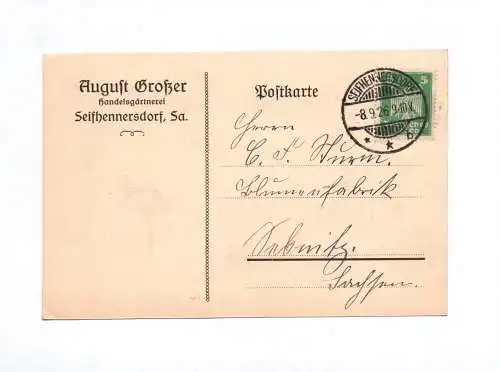 August Großer
Handelsgärtnerei
Seifhennersdorf, Sa.
Postkarte
SEIFHENNERSDORF
-8.9.26 9-10V.
b
5
Herren
C. F. Sturm.
Blumenfabrik
Sebnitz.
Sachsen.